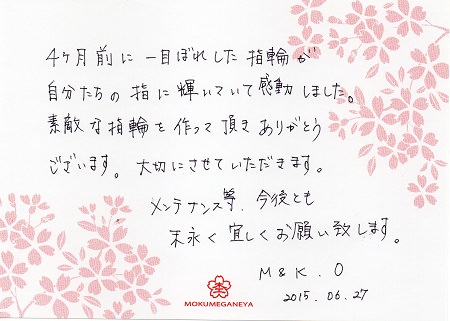 4ケ月前に一目ぼれした指輪が
自分たちの指に輝いていて感動しました。
素敵な指輪を作って頂きありがとう
ございます。大切にさせていただきます。
メンテナンス等、今後とも
末永く宜しくお願い致します。
M & K . O
2015.06.27
MOKUMEGANEYA